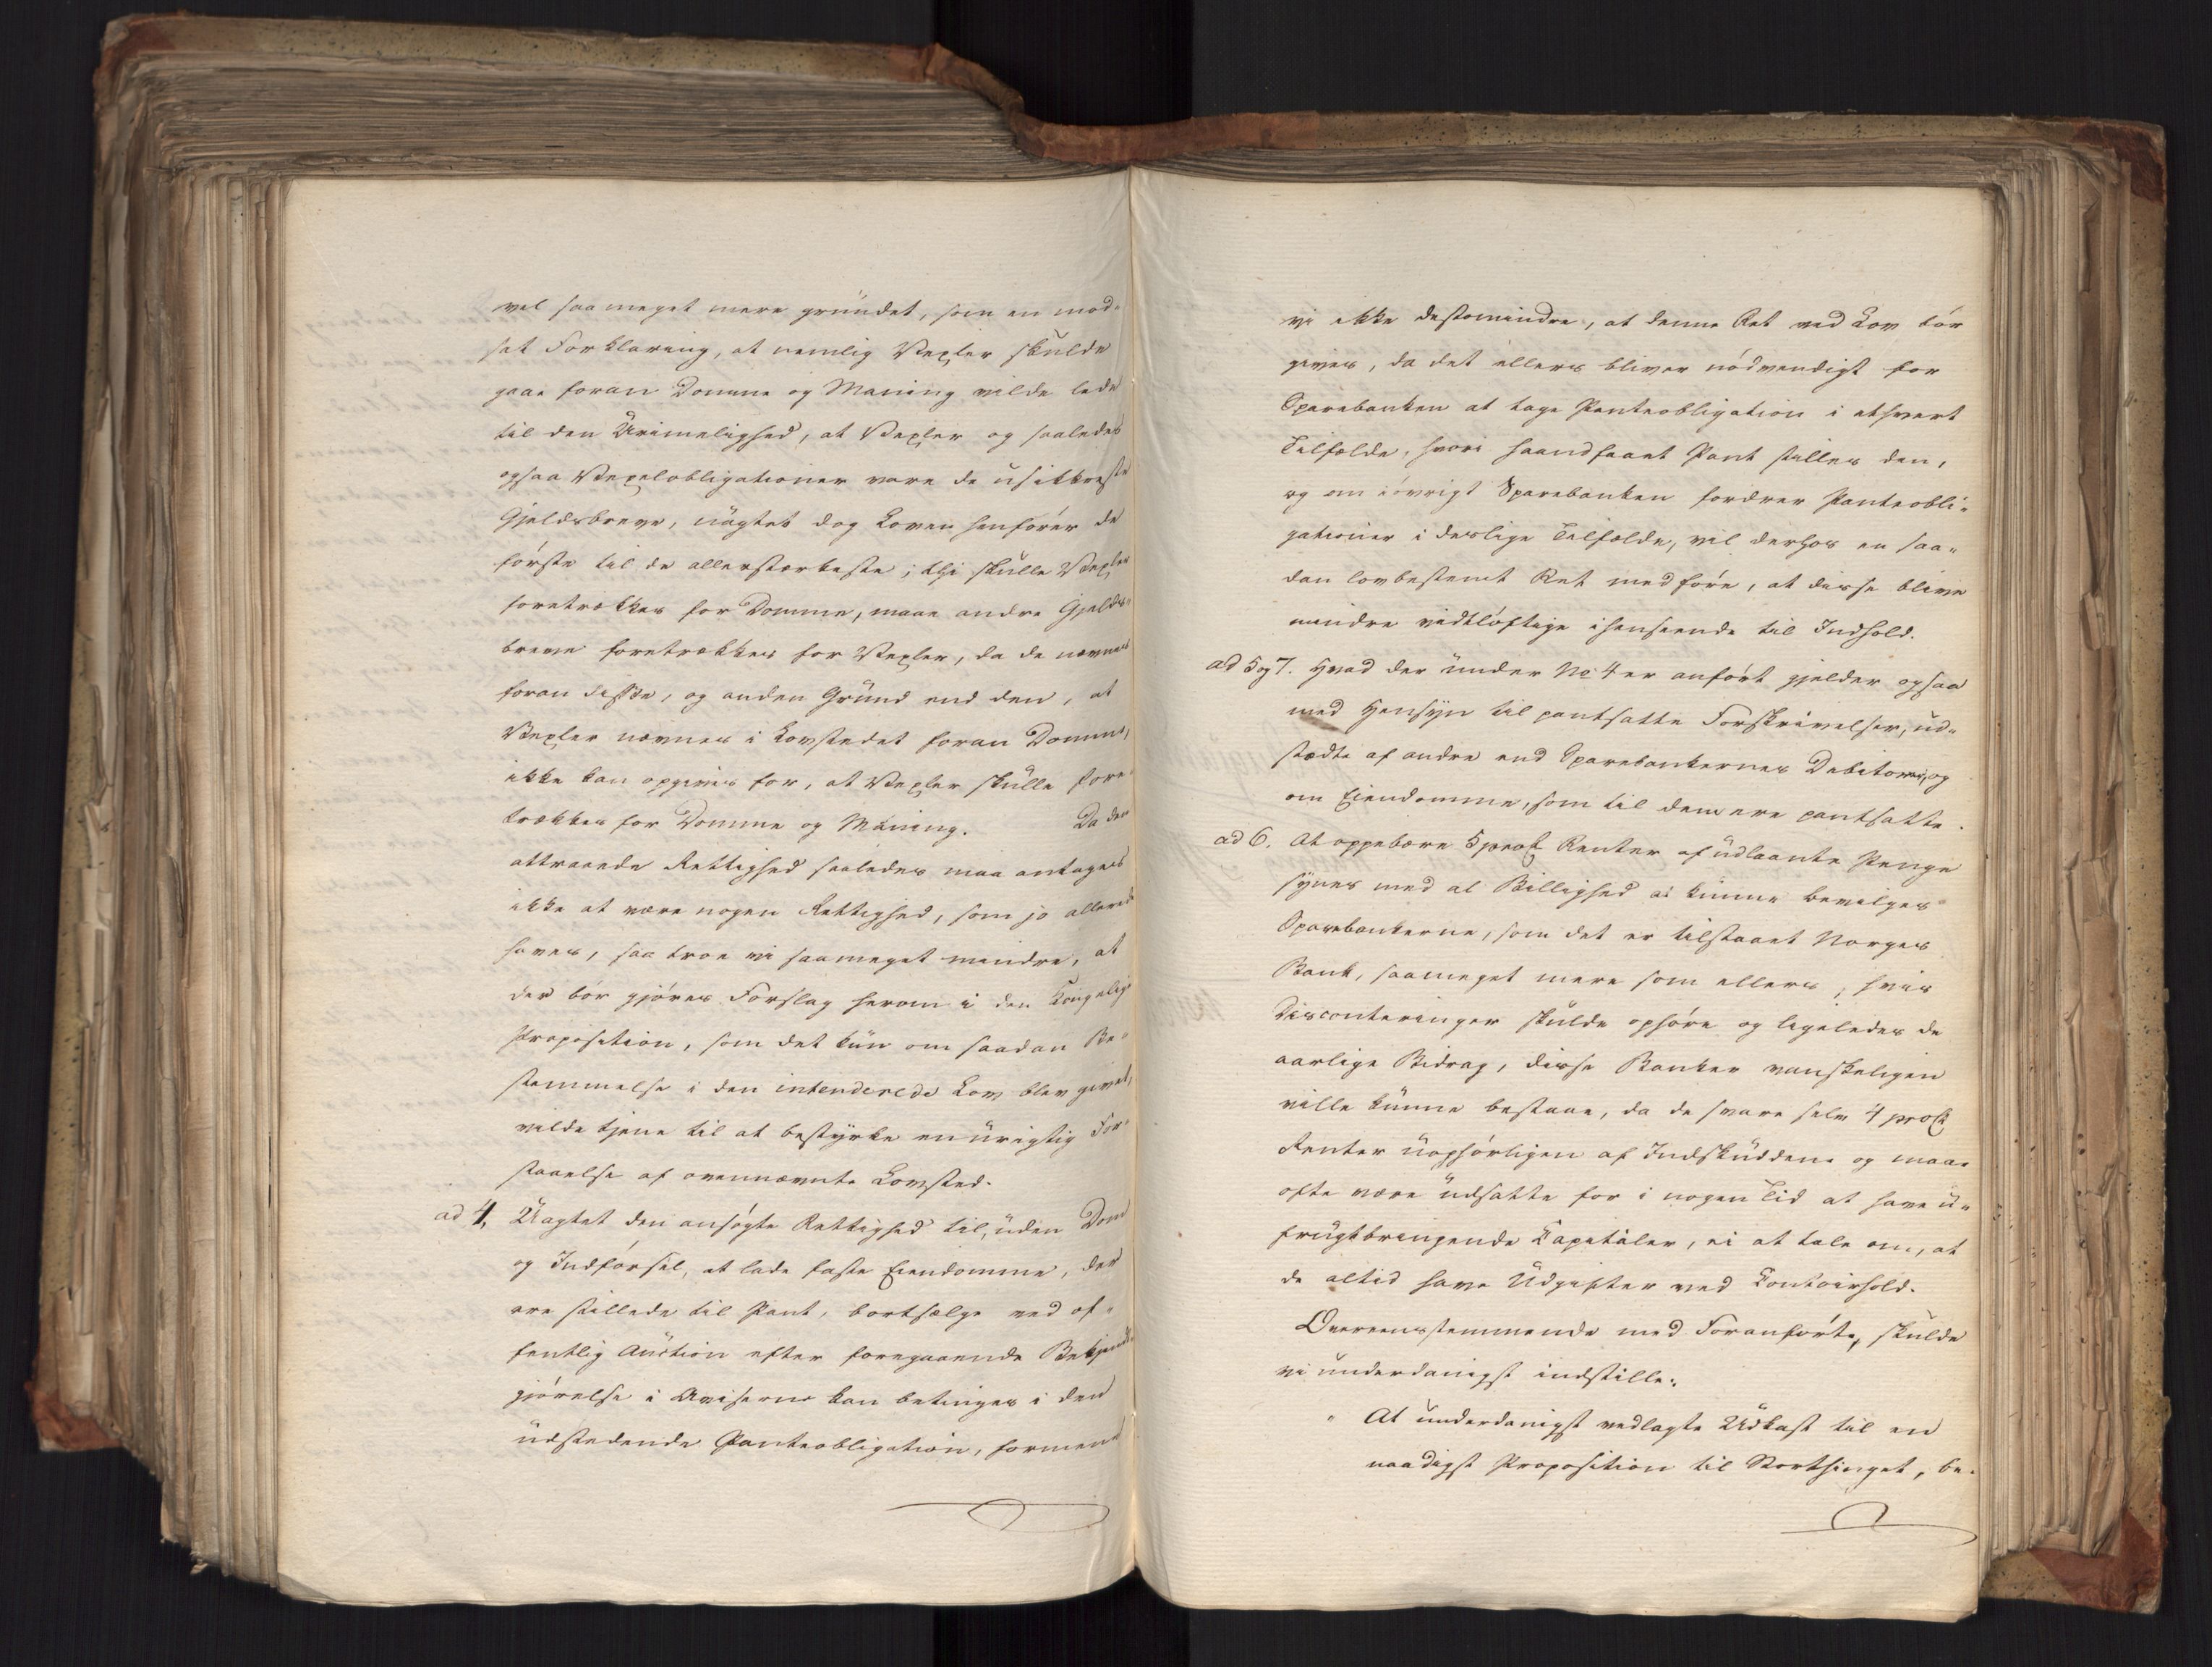 vel saa meget mere grundet, som en mod-
sat Forklaring, at nemlig Vexler skulde
gaae foran Domme og Maning vilde lede
til den Urimelighed, at Vexler og saaledes
ogsaa Vexelobligationer vare de usikkreste
Gjeldsbreve, uagtet dog Loven henförer de
förste til de allerstærkeste; thi skulle Vexler
foretrækkes for Domme, maae andre Gjelds-
breve foretrækkes for Vexler, da de nævnes
foran disse, og anden Grund end den, at
Vexler nævnes i Lovstedet foran Domme,
ikke kan opgives for, at Vexler skulle fore-
trækkes for Domme og Maning. Da den
attraaede Rettighed saaledes maa antages
ikke at være nogen Rettighed, som jo allerede
haves, saa troe vi saameget mindre, at
der bör gjöres Forslag herom i den Kongelige
Proposition, som det kun om saadan Be-
stemmelse i den intenderede Lov blev givet,
vilde tjene til at bestyrke en urigtig For-
staaelse af ovennævnte Lovsted.
ad 4, Uagtet den ansögte Rettighed til, uden Dom
og Indförsel, at lade faste Eiendomme, der
ere stillede til Pant, bortsælge ved of-
fentlig Auction efter foregaaende Bekjendt-
gjörelse i Aviserne kan betinges i den
udstedende Panteobligation, formene
vi ikke destomindre, at denne Ret ved Lov bör
gives, da det ellers bliver nödvendigt for
Sparebanken at tage Panteobligation i ethvert
Tilfælde, hvori haandfaaet Pant stilles den,
og om iövrigt Sparebanken fordrer Panteobli-
gationer i deslige Tilfælde, vil derhos en saa-
dan lovbestemt Ret medföre, at disse blive
mindre vidtlöftige ihenseende til Indhold.
ad 5 og 7. Hvad der under No 4 er anfört gjelder ogsaa
med Hensyn til pantsatte Forskrivelser, ud-
stædte af andre end Sparebankernes Debitorer, og
om Eiendomme, som til dem ere pantsatte.
ad 6. At oppebære 5 proC Renter af udlaante Penge
synes med al Billighed at kunne bevilges
Sparebankerne, som det er tilstaaet Norges
Bank, saameget mere som ellers, hvis
Disconteringer skulde ophöre og ligeledes de
aarlige Bidrag, disse Banker vanskeligen
ville kunne bestaae, da de svare selv 4 proC
Renter uophörligen af Indskuddene og maae
ofte være udsatte for i nogen Tid at have u-
frugtbringende Kapitaler, ei at tale om, at
de altid have Udgifter ved Contoirhold.
Overeensstemmende med Foranförte, skulde
vi underdanigst indstille:
" At underdanigst vedlagte Udkast til en
naadigst Proposition til Storthinget, be-